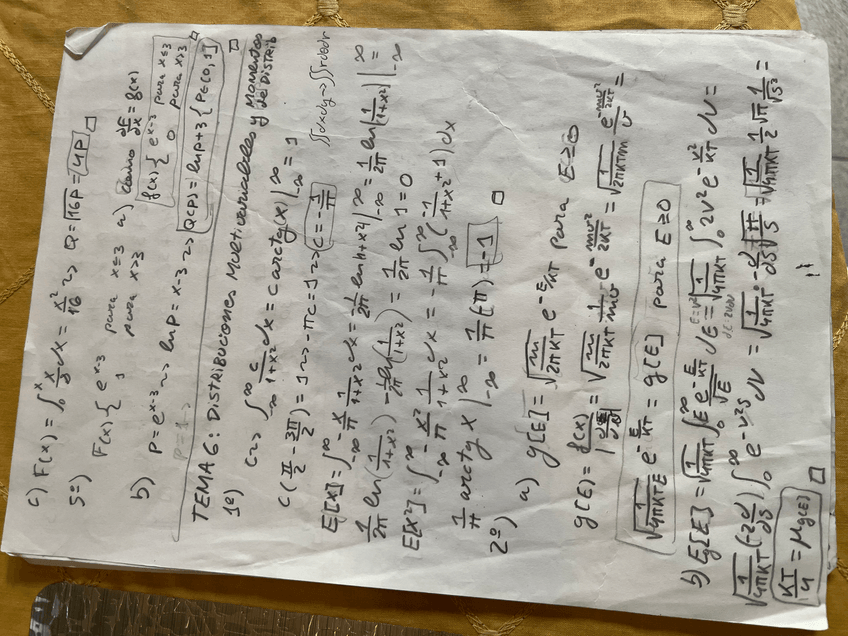 c) F(x) = ∫₀ˣ x/8 dx = x²/16 ~> Q = √16P = 4P □
5º) F(x) { e^(x-3) para x≤3
1 para x>3
a) dF/dx = f(x)
f(x) { e^(x-3) para x≤3
0 para x>3
b) P = e^(x-3) ~> ln P = x-3 ~> Q(P) = ln P + 3 { P∈[0,1] □
P=1 ~>
TEMA 6: DISTRIBUCIONES MULTIVARIABLES Y MOMENTOS DE DISTRIB
1º) C ~> ∫_{-∞}^{∞} c/(1+x²) dx = c arctg(x) |_{-∞}^{∞} = 1
∬dxdy → ∬rdθdr
C (π/2 - 3π/2) = 1 ~> -πc = 1 ~> c = -1/π
E[X] = ∫_{-∞}^{∞} -x/π 1/(1+x²) dx = -1/2π ln|1+x²| |_{-∞}^{∞} = 1/2π ln|1/(1+x²)| |_{-∞}^{∞} =
1/2π ln(1/(1+x²)) - 1/2π ln(1/(1+x²)) = 1/2π ln 1 = 0
E[X²] = ∫_{-∞}^{∞} -x²/π 1/(1+x²) dx = -1/π ∫_{-∞}^{∞} (-1/(1+x²) + 1) dx
1/π arctg x |_{-∞}^{∞} = 1/π (π) = -1 □
2º) a) g[E] = √(m/2πKT) e^(-E/KT) para E≥0
g(E) = f(x)/|dE/dv| = √(m/2πKT) 1/mv e^(-mv²/2KT) = √(1/2πKTm) e^(-mv²/2KT)/v =
√(1/4πKTE) e^(-E/KT) = g[E] para E≥0
b) E[E] = √(1/4πKT) ∫₀^∞ E e^(-E/KT)/√E dE = √(1/4πKT) ∫₀^∞ 2v² e^(-v²/KT) dv =
E=v²
dE=2vdv
√(1/4πKT) (-2 d/ds) ∫₀^∞ e^(-v²s) dv = √(1/4πKT) · -d/ds √(π/s) = √(1/4πKT) 1/2 √π 1/√s³ =
KT/4 = μ_g(E) □